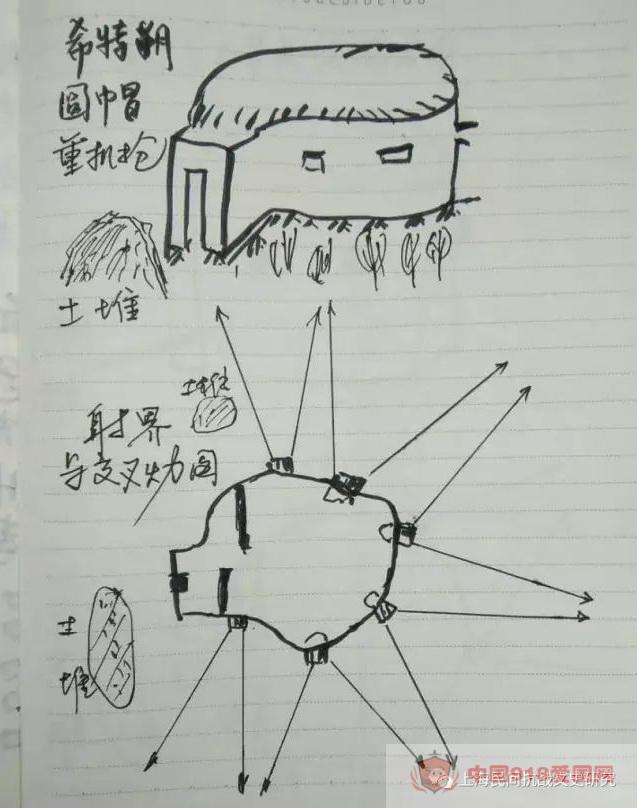 希特朔
圆帽
重机枪
土堆
土堆
射界
与交叉火力图
土
堆
中国918爱国网
上海民间抗战文史研究